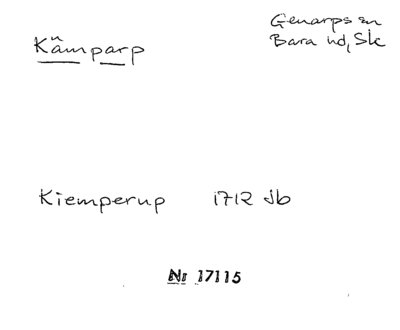 Genarps sn
Bara hd, Sk
Kämparp
Kiemperup 1712 Jb
Nr 17115